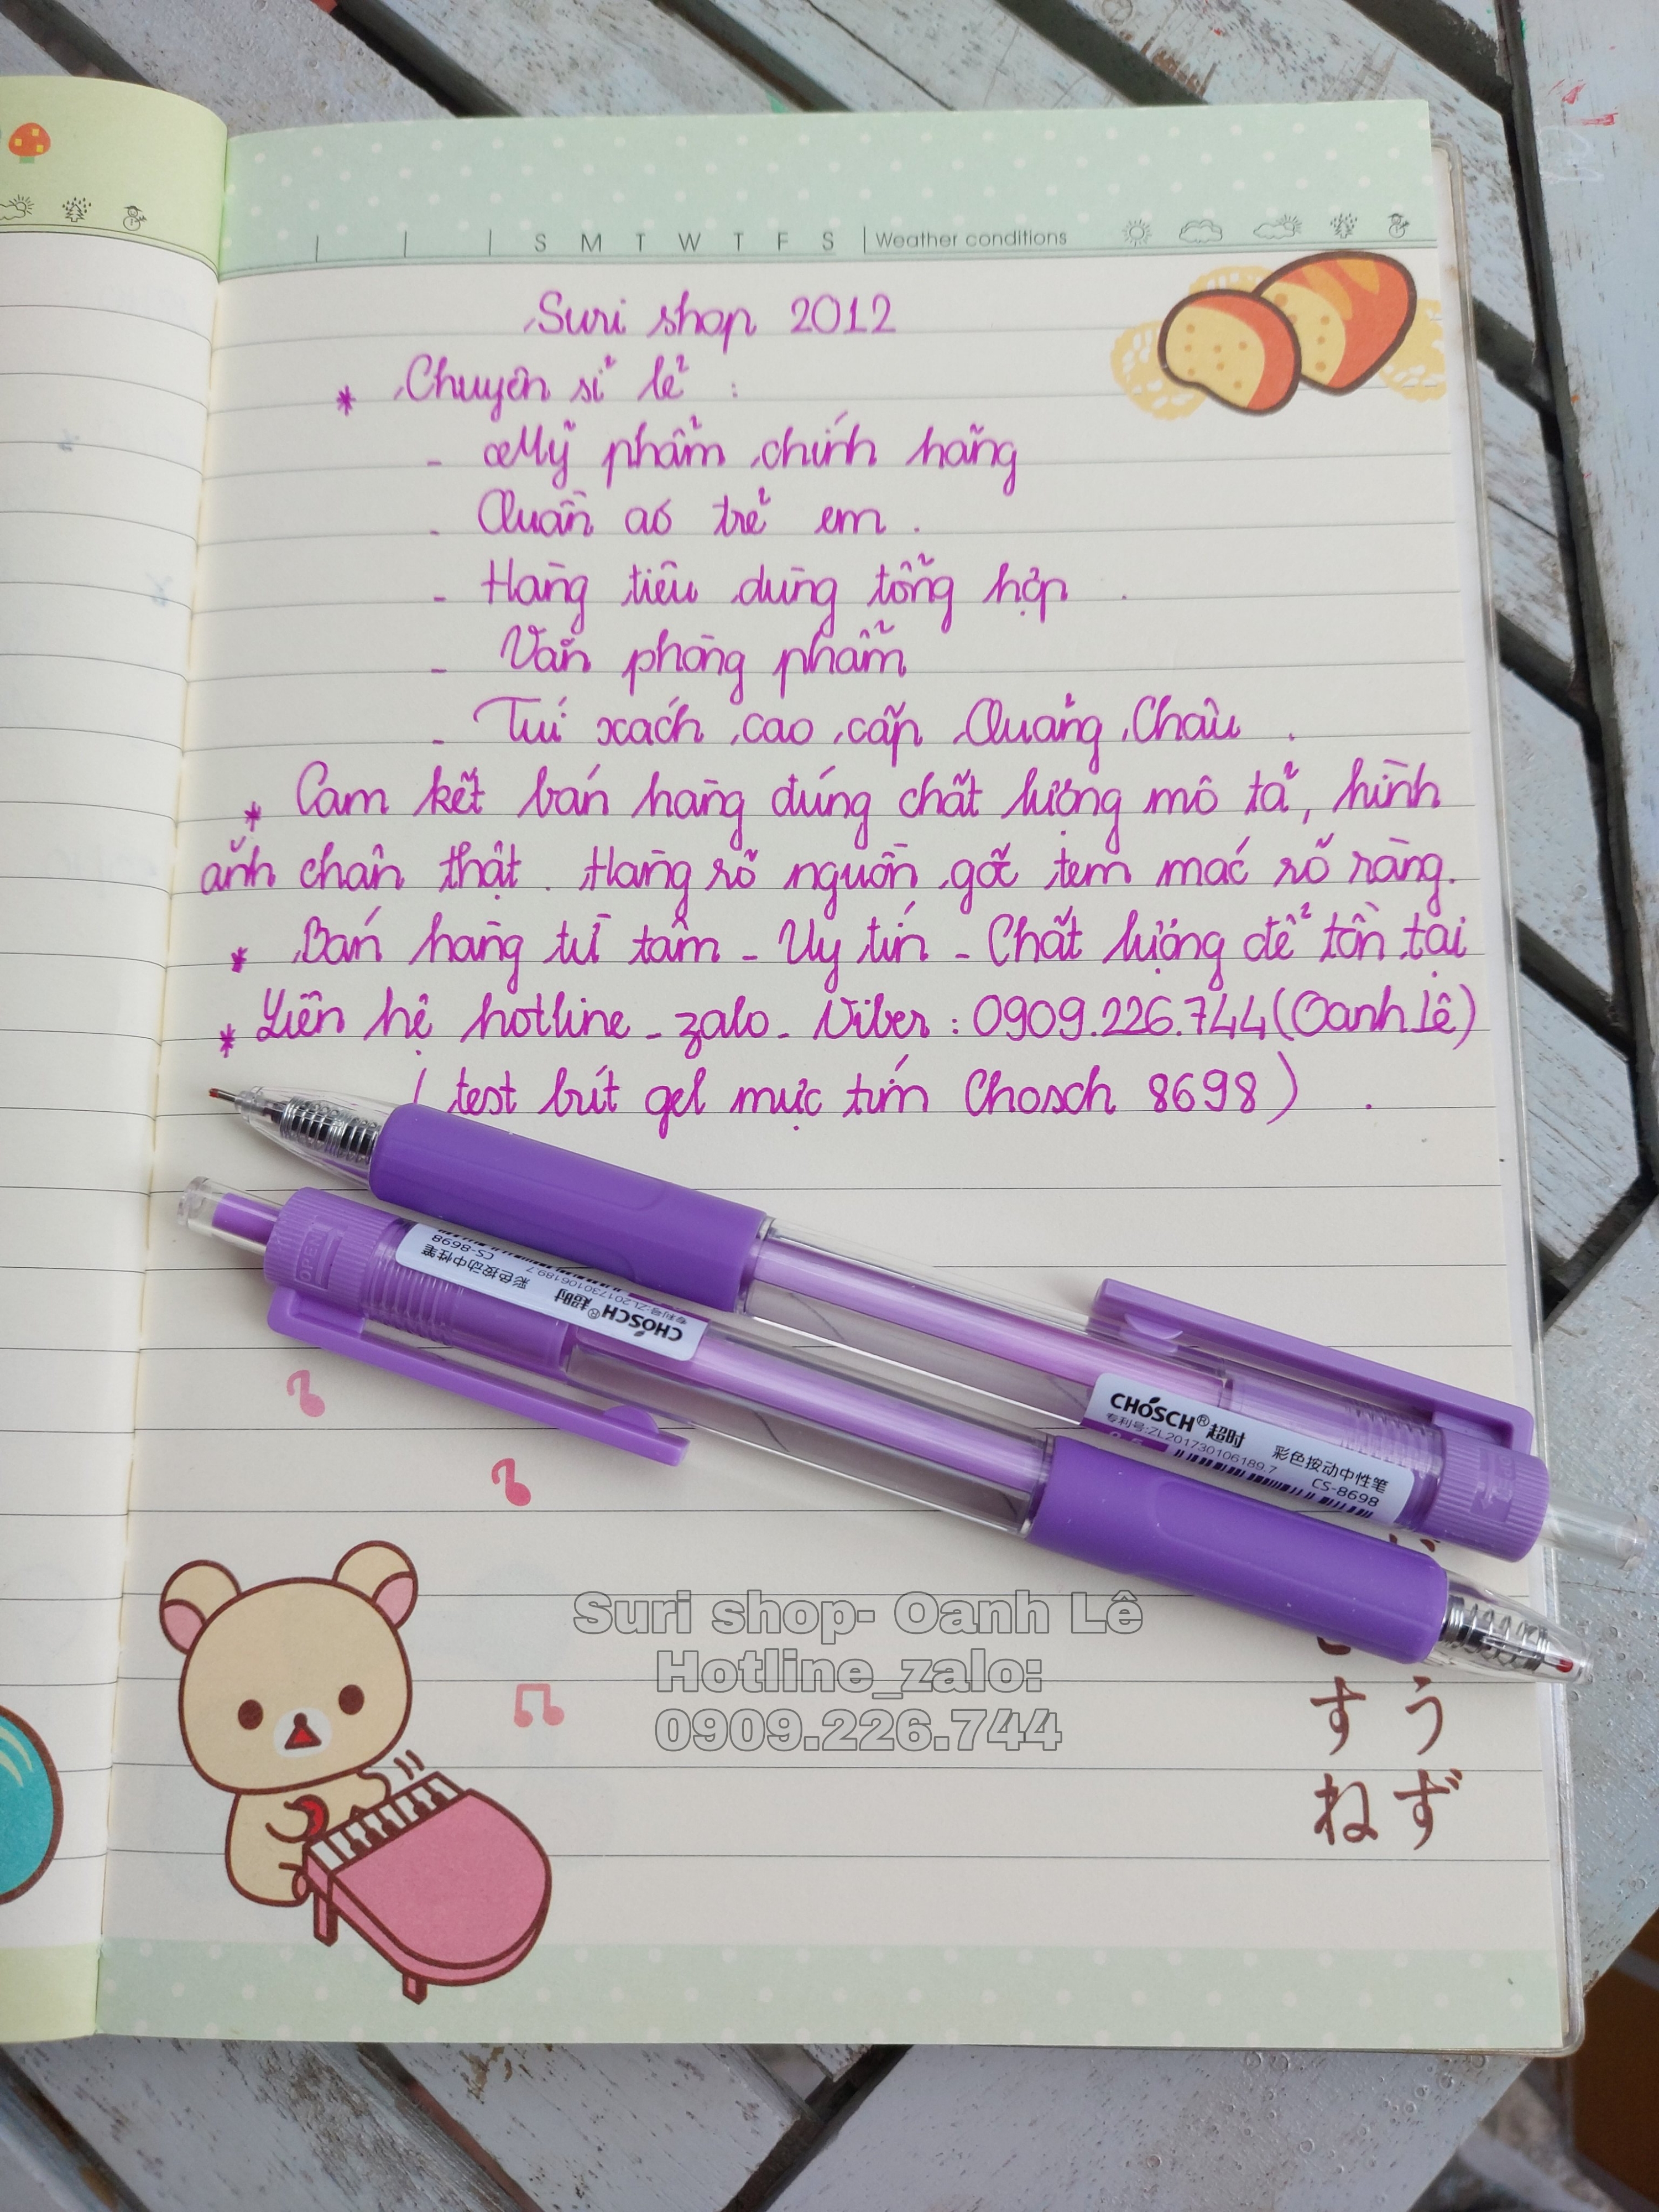 S M T W T F S Weather conditions
Suri shop 2012
* Chuyên sỉ lẻ :
- Mỹ phẩm chính hãng
- Quần áo trẻ em .
- Hàng tiêu dùng tổng hợp .
- Văn phòng phẩm
- Túi xách cao cấp Quảng Châu .
* Cam kết bán hàng đúng chất lượng mô tả, hình
ảnh chân thật . Hàng rõ nguồn gốc tem mác rõ ràng.
* Bán hàng từ tâm - Uy tín - Chất lượng để tồn tại
* Liên hệ hotline - zalo - Viber : 0909.226.744 (Oanh Lê)
( test bút gel mực tím Chosch 8698 ) .
OPEN
CHOSCH® 超时 彩色按动中性笔
专利号:ZL201730106189.7 CS-8698
CHOSCH® 超时 彩色按动中性笔
专利号:ZL201730106189.7 CS-8698
Suri shop- Oanh Lê
Hotline_zalo:
0909.226.744
うず
すね